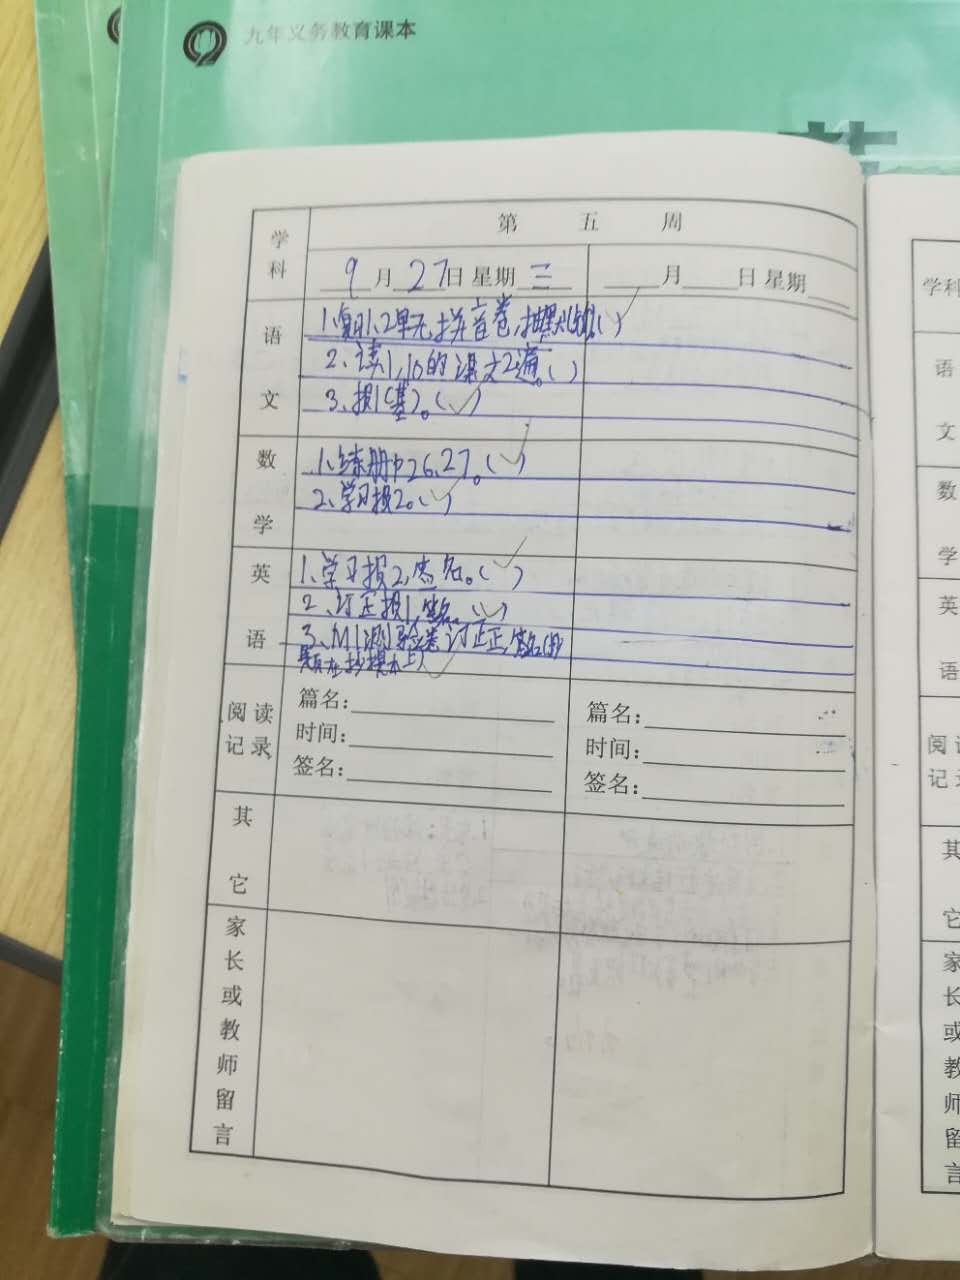 九年义务教育课本
英
学科
第 五 周
9月27日 星期三
月 日 星期
语文
1、复习1、2单元,拼音卷,抽默
2、读1,10的课文2遍。( )
3、报1(基)。(✓)
数学
1、练册P26、27。(✓)
2、学习报2。(✓)
英语
1、学习报2,签名。(✓)
2、订正报1,签名。(✓)
3、M1测验卷订正,签名
题在抄摸本上)✓
阅读记录
篇名:
时间:
签名:
篇名:
时间:
签名:
其它
家长或教师留言
学科
语文
数学
英语
阅读
记录
其它
家长或教师留言